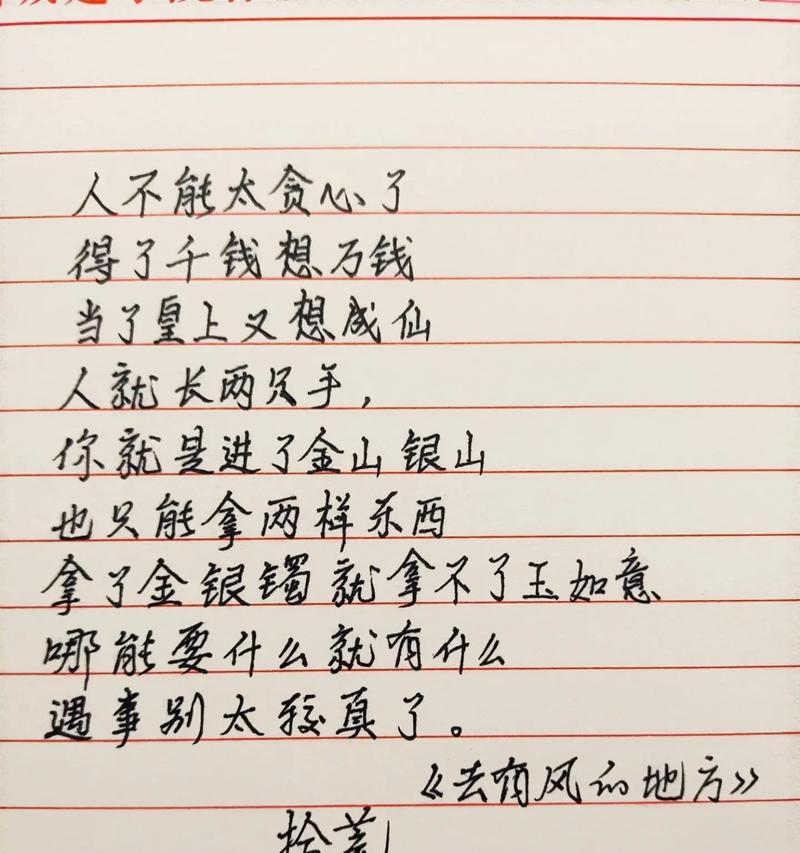 人不能太贪心了
得了千钱想万钱
当了皇上又想成仙
人就长两只手，
你就是进了金山银山
也只能拿两样东西
拿了金银镯就拿不了玉如意
哪能要什么就有什么
遇事别太较真了。
《去有风的地方》